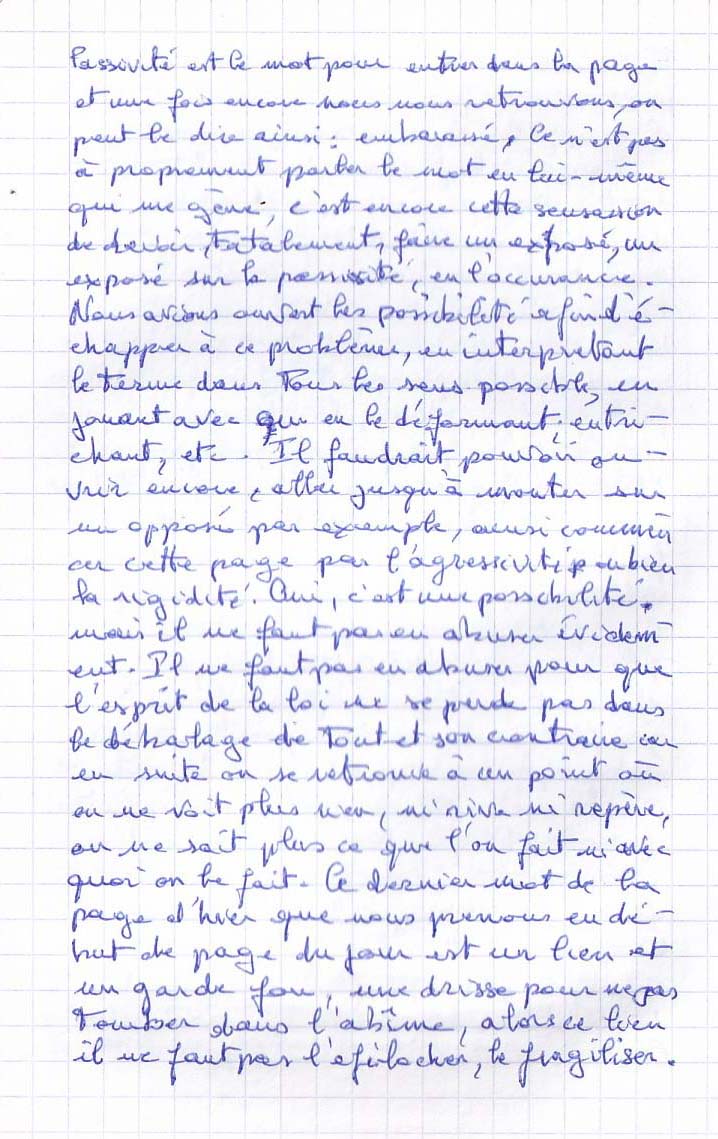 Passivité est le mot pour entrer dans la page
et une fois encore nous nous retrouvons, on
peut le dire ainsi : embarassé, Ce n'est pas
à proprement parler le mot en lui-même
qui me gêne, c'est encore cette sensasion
de devoir, fatalement, faire un exposé, un
exposé sur la passivité, en l'occurance.
Nous avions ouvert les possibilité afin d'é-
chapper à ce problème, en interprétant
le terme dans tous les sens possible, en
jouant avec qu en le déformant, en tri-
chant, etc. Il faudrait pouvoir ou-
vrir encore, aller jusqu'à monter sur
un opposé par exemple, ainsi commen
cer cette page par l'agressivité, ou bien
la rigidité. Oui, c'est une possibilité,
mais il ne faut pas en abuser évidem
ent. Il ne faut pas en abuser pour que
l'esprit de la loi ne se perde pas dans
le déballage de tout et son contraire car
en suite on se retrouve à un point où
on ne voit plus rien, ni rive ni repère,
on ne sait plus ce que l'on fait ni avec
quoi on le fait. Ce dernier mot de la
page d'hier que nous prenons en dé-
but de page du jour est un lien et
un garde fou, une drisse pour ne pas
tomber dans l'abîme, alors ce lien
il ne faut pas l'éfilocher, le fragiliser.